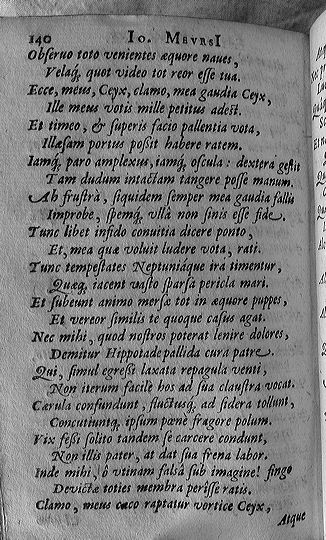 140 IO. MEVRSI
Obseruo toto venientes æquore naues,
Velaq́, quot video tot reor esse tua.
Ecce, meus, Ceyx, clamo, mea gaudia Ceyx,
Ille meus votis mille petitus adest.
Et timeo, & superis facio pallentia vota,
Illæsam portus possit habere ratem.
Iamq́, paro amplexus, iamq́, oscula: dextera gestit
Tam dudum intactam tangere posse manum.
Ah frustrà, siquidem semper mea gaudia fallis
Improbe, spemq́, vllâ non sinis esse fide.
Tunc libet infido conuitia dicere ponto,
Et, mea quæ voluit ludere vota, rati.
Tunc tempestates Neptuniáque ira timentur,
Quæq́, iacent vasto sparsa pericla mari.
Et subeunt animo mersæ tot in æquore puppes,
Et vereor similis te quoque casus agat.
Nec mihi, quod nostros poterat lenire dolores,
Demitur Hippotade pallida cura patre.
Qui, simul egressi laxata repagula venti,
Non iterum facilè hos ad sua claustra vocat.
Cærula confundunt, fluctusq́, ad sidera tollunt,
Concutiuntq́, ipsum pæne fragore polum.
Vix fessi solito tandem se carcere condunt,
Non illis pater, at dat sua frena labor.
Inde mihi, ô vtinam falsâ sub imagine! fingo
Devictæ toties membra perisse ratis.
Clamo, meus cæco raptatur vortice Ceyx,
Atque